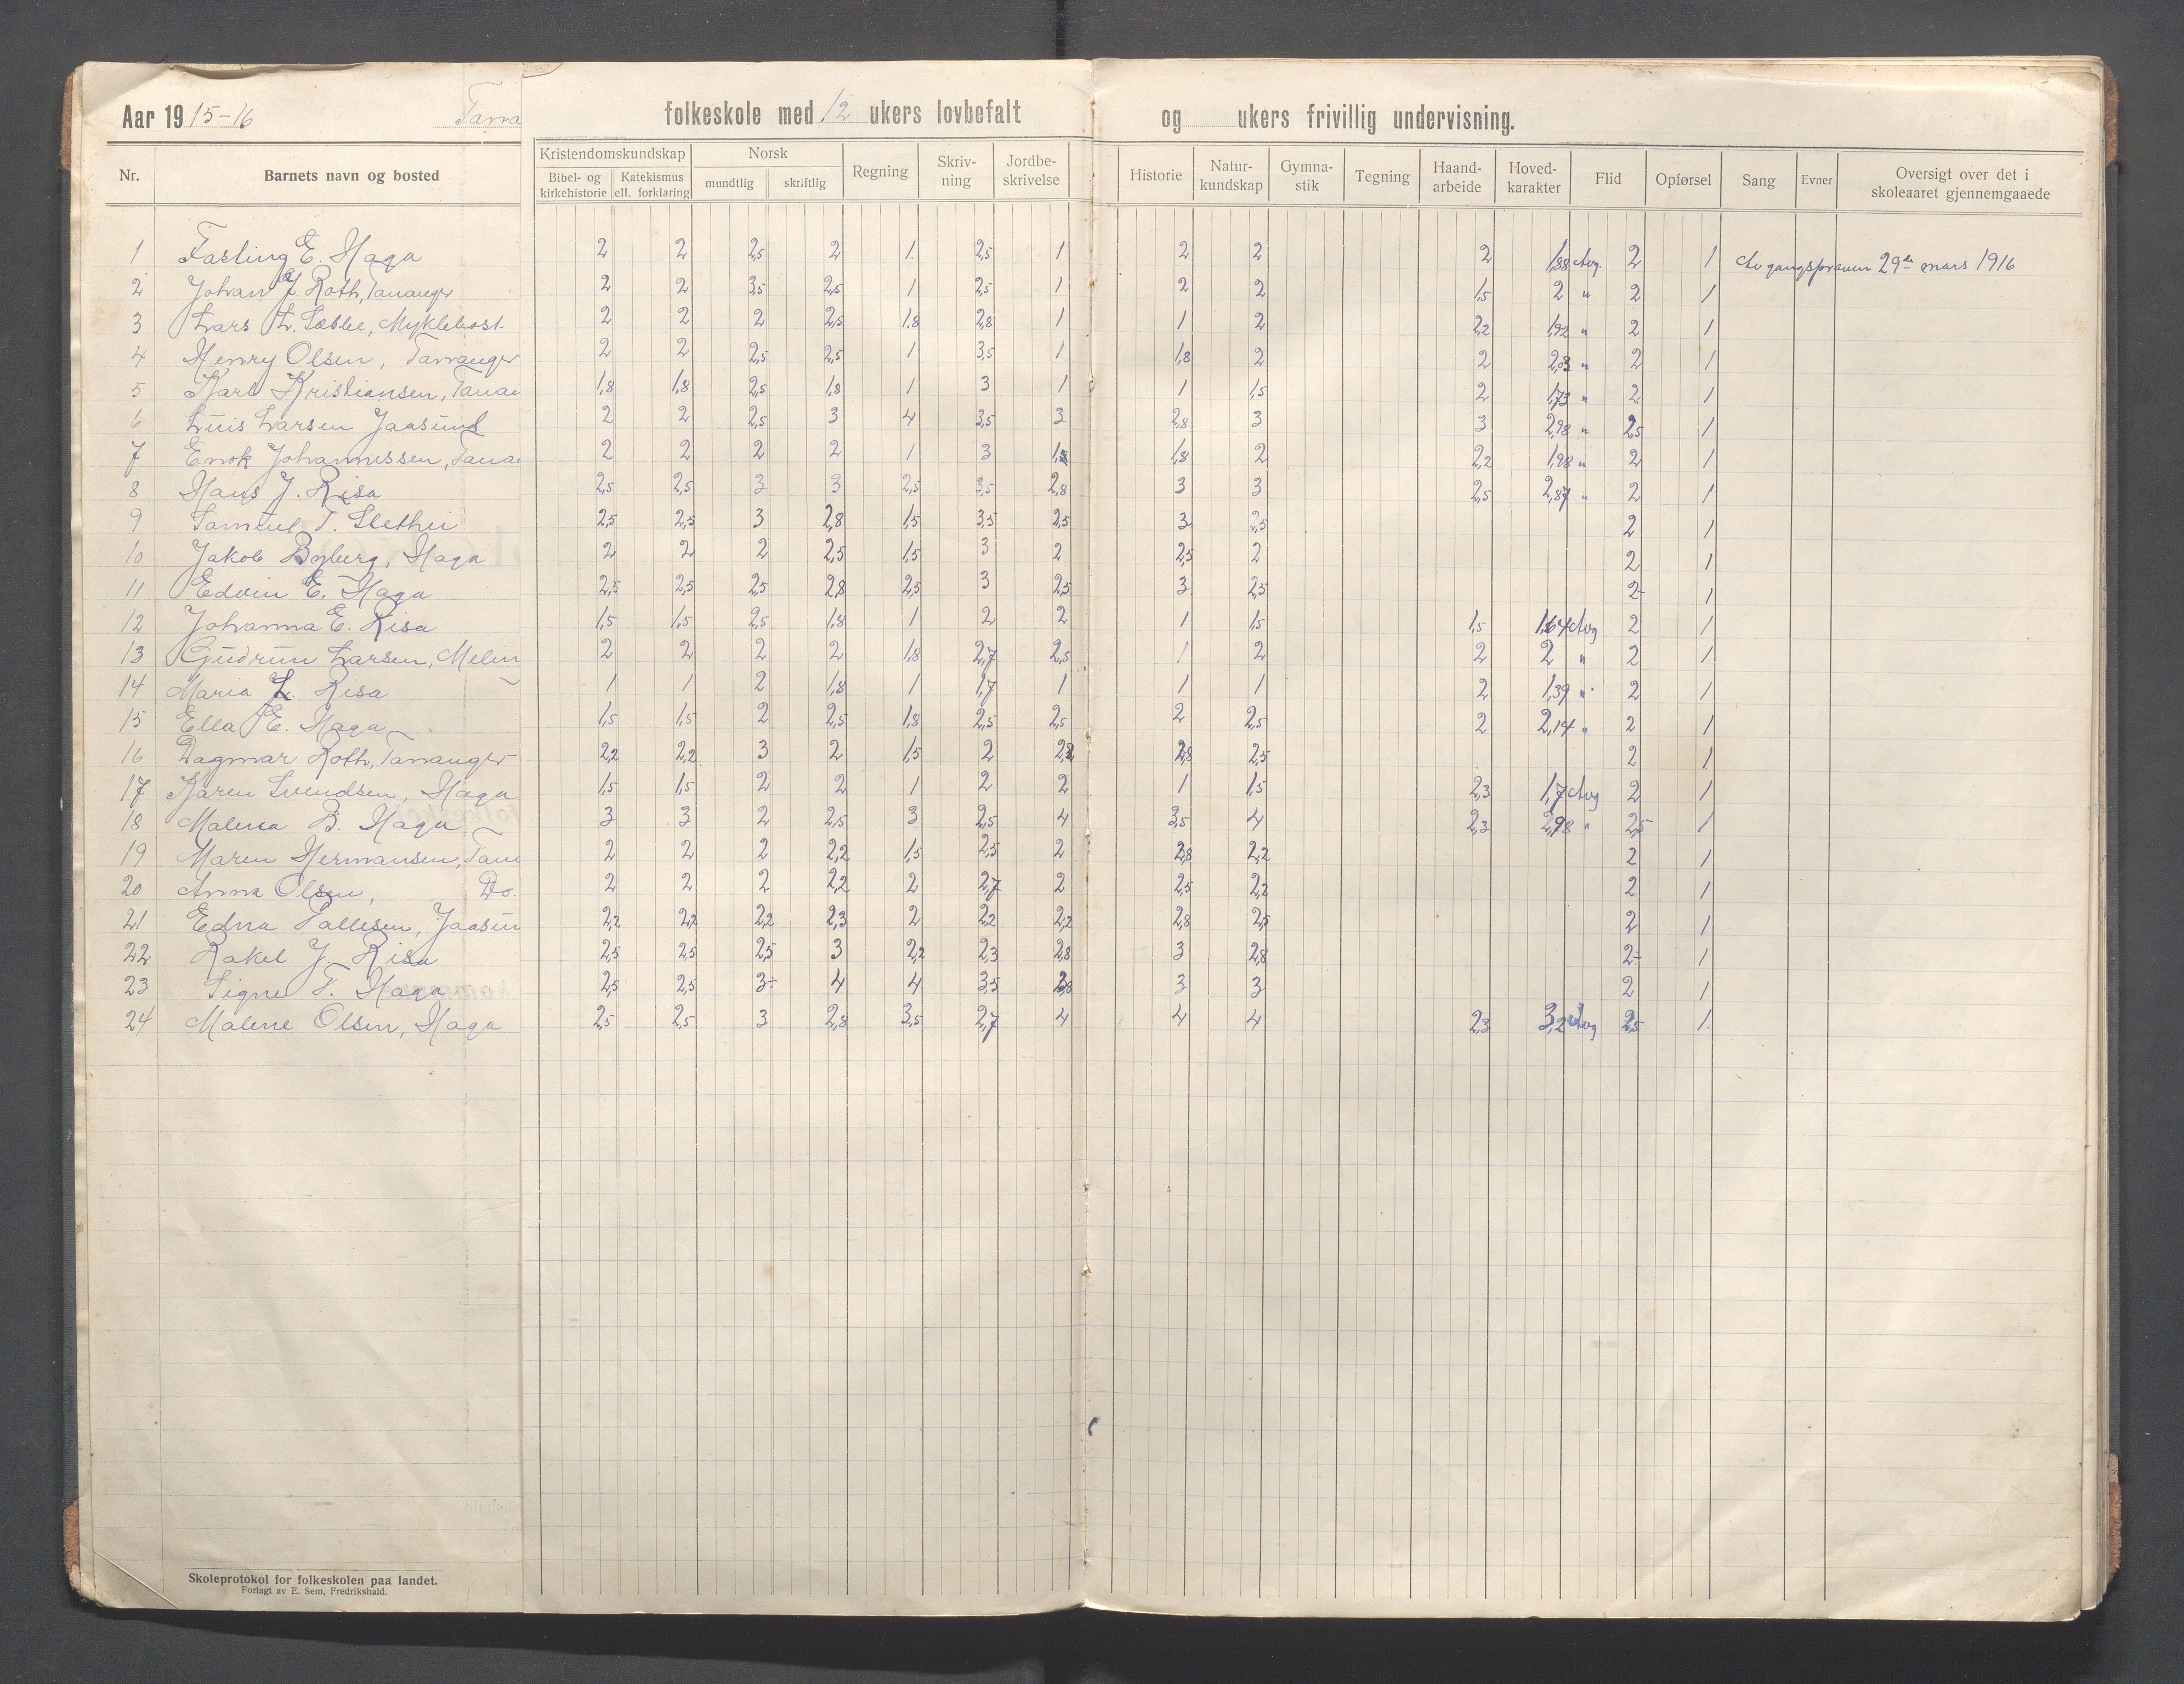 Aar 1915-16 Tana folkeskole med 12 ukers lovbefalt og ukers frivillig undervisning.
Nr. Barnets navn og bosted Kristendomskundskap Bibel- og kirkehistorie Katekismus ell. forklaring Norsk mundtlig skriftlig Regning Skriv-ning Jordbe-skrivelse Historie Natur-kundskap Gymna-stik Tegning Haand-arbeide Hoved-karakter Flid Opførsel Sang Evner Oversigt over det i skoleaaret gjennemgaaede
1 E. Haga 2 2 2,5 2 1 2,5 1 2 2 2 1,88 Avg. 2 1 Avgangsprøven 29de mars 1916
2 Johan J. Roth, Tananger 2 2 3,5 2,5 1 2,5 1 2 2 1,5 2 " 2 1
3 Lars L. Myklebost 2 2 2 2,5 1,8 2,8 1 1 2 2,2 1,92 " 2 1
4 Henry Olsen, Tananger 2 2 2,5 2,5 1 3,5 1 1,8 2 2 " 2 1
5 Karl Kristiansen, Tanan 1,8 1,8 2,5 1,8 1 3 1 1 1,5 2 1,73 " 2 1
6 Larsen Jaasund 2 2 2,5 3 4 3,5 3 2,8 3 3 2,98 " 2,5 1
7 Enok Johannessen, Tanan 2 2 2 2 1 3 1,8 1,8 2 2,2 1,98 " 2 1
8 Hans J. Risa 2,5 2,5 3 3 2,5 3,5 2,8 3 3 2,5 2,87 " 2 1
9 Samuel T. Slethei 2,5 2,5 3 2,8 1,5 3,5 2,5 3 2,5 2 1
10 Jakob Byberg, Haga 2 2 2 2,5 1,5 3 2 2,5 2 2 1
11 Edvin E. Haga 2,5 2,5 2,5 2,8 2,5 3 2,5 3 2,5 2- 1
12 Johanna E. Risa 1,5 1,5 2,5 1,8 1 2 2 1 1,5 1,5 1,64 Avg 2 1
13 Gudrun Larsen, Melin 2 2 2 2 1,8 2,7 2,5 1 2 2 2 " 2 1
14 Maria L. Risa 1 1 2 1,8 1 1,7 1 1 1 2 1,39 " 2 1
15 Ella E. Haga 1,5 1,5 2 2,5 1,8 2,5 2,5 2 2,5 2 2,14 " 2 1
16 Dagmar Roth, Tananger 2,2 2,2 3 2 1,5 2 2,8 2,8 2,5 2 1
17 Karen Svendsen, Haga 1,5 1,5 2 2 1 2 2 1 1,5 2,3 1,7 Avg 2 1
18 Malena B. Haga 3 3 2 2,5 3 2,5 4 3,5 4 2,3 2,98 " 2,5 1
19 Maren Hermansen, Tana 2 2 2 2,2 1,5 2,5 2 2,8 2,2 2 1
20 Anna Olsen, Do. 2 2 2 2,2 2 2,7 2 2,5 2,2 2 1
21 Edna Tallesen, Jaasun 2,2 2,2 2,2 2,3 2 2,2 2,2 2,8 2,5 2 1
22 Rakel J. Risa 2,5 2,5 2,5 3 2,2 2,3 2,8 3 2,8 2- 1
23 Signe T. Haga 2,5 2,5 3- 4 4 3,5 3 3 2 1
24 Malene Olsen, Haga 2,5 2,5 3 2,8 3,5 2,7 4 4 4 2,3 3,2 Avg 2,5 1
Skoleprotokol for folkeskolen paa landet.
Forlagt av E. Sem, Fredrikshald.